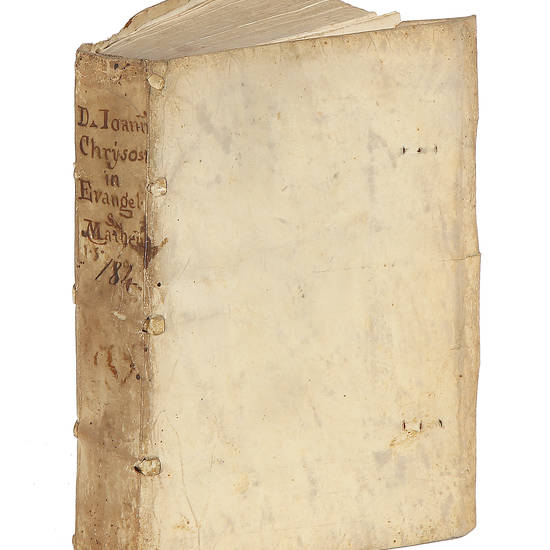 D. Ioann
Chrysost
in
Evangel
S
Mathei
15
184